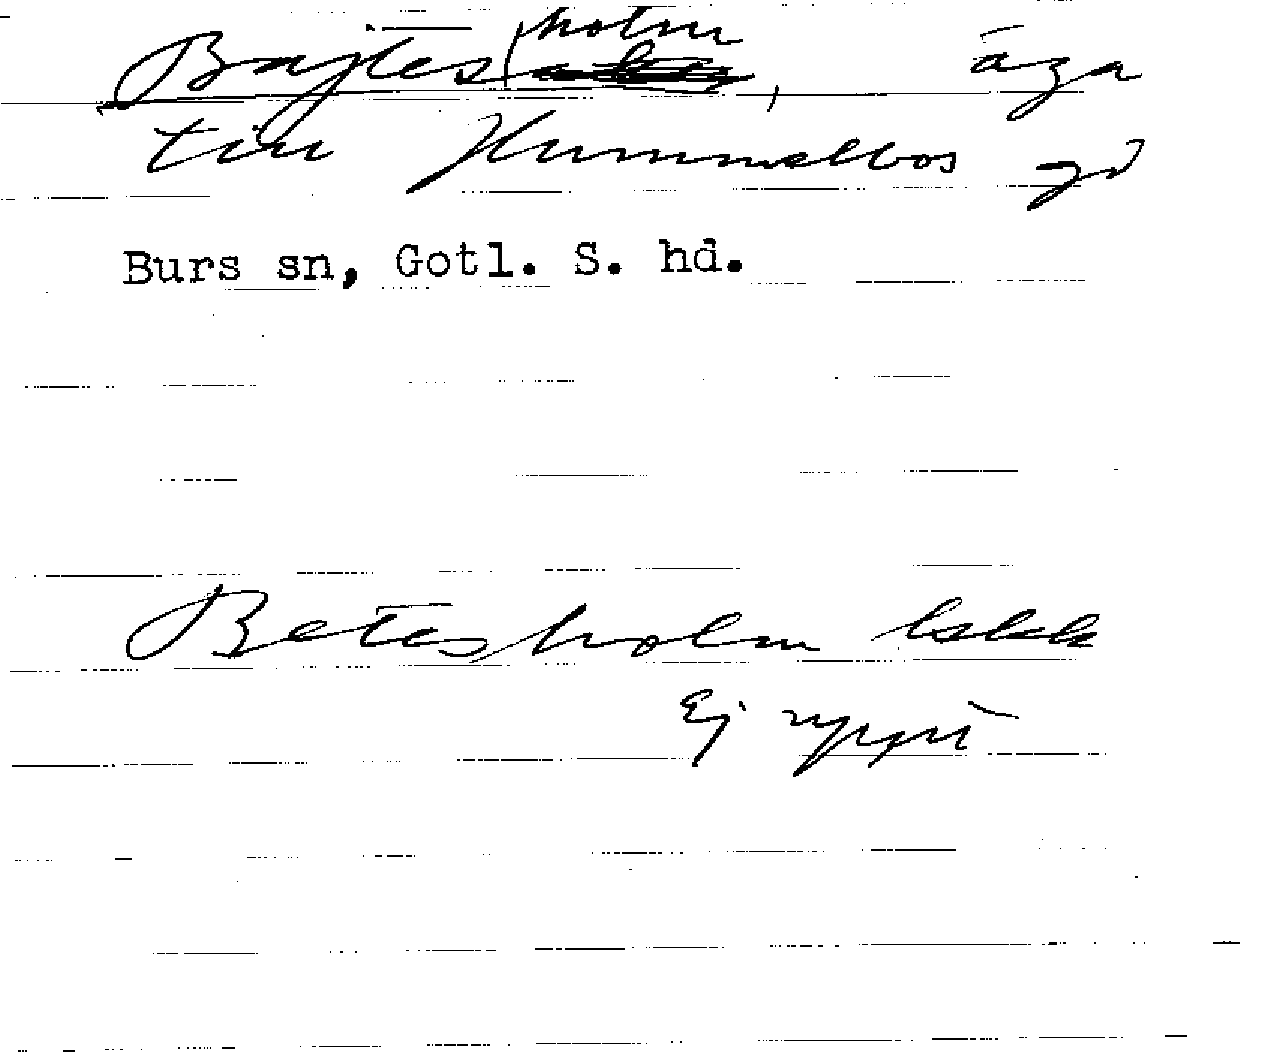 Bajtesholm, äga
till Hummelbos gd
Burs sn, Gotl. S. hd.
Betesholm
Ej uppt